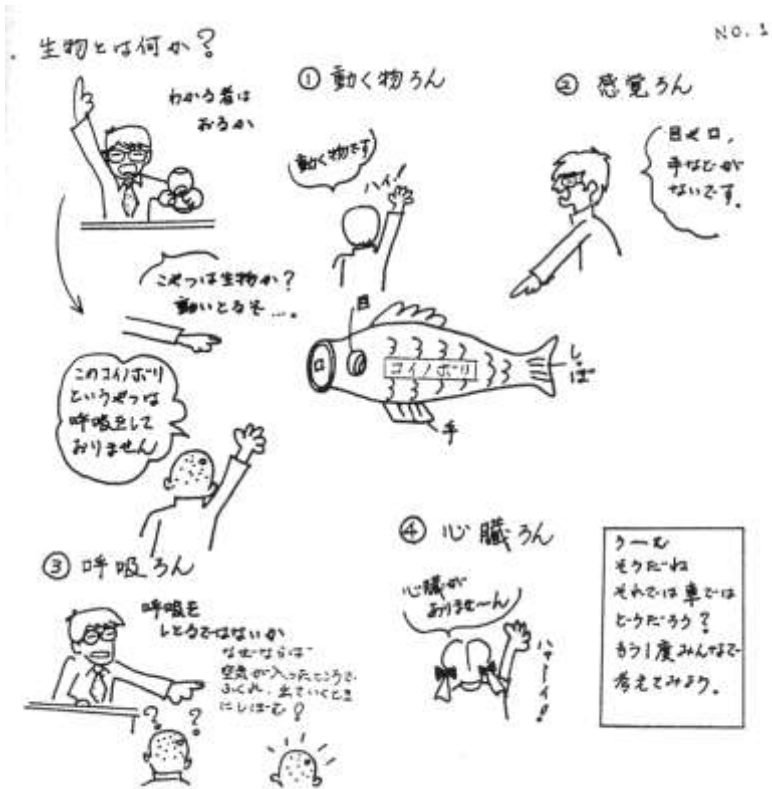 NO. 1
生物とは何か?
わかる者は
おるか
① 動く物ろん
動く物です
ハイ!
② 感覚ろん
目や口,
手などが
ないです。
こやつは生物か?
動いとるぞ…。
目
口
コイノボリ
しっぽ
手
このコイノボリ
というやつは
呼吸をして
おりません
③ 呼吸ろん
呼吸を
しとるではないか
なぜならば
空気が入ったところで
ふくれ、出ていくとき
にしぼむ?
? ?
④ 心臓ろん
心臓が
ありませーん
ハァーイ!
うーむ
そうだね
それでは車では
どうだろう?
もう1度みんなで
考えてみよう。